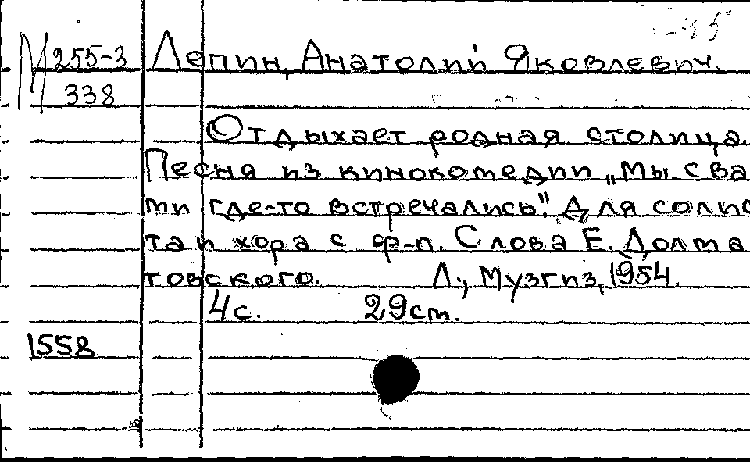 М 255-3 Лепин, Анатолий Яковлевич.
338
Отдыхает родная столица.
Песня из кинокомедии „Мы с ва
ми где-то встречались". Для солис
та и хора с ф-п. Слова Е. Долма
товского. Л., Музгиз, 1954.
4с. 29см.
1558